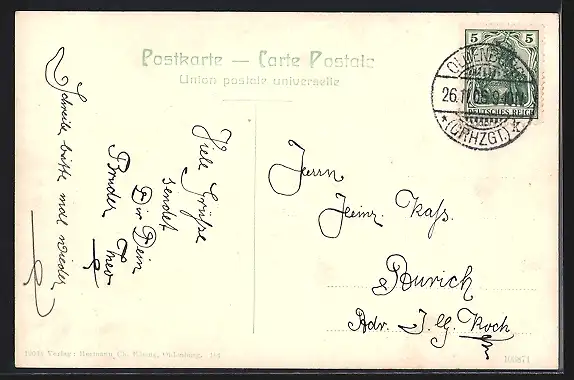 Postkarte — Carte Postale
Union postale universelle
5 5
DEUTSCHES REICH
OLDENBURG
26.11.06. 9-10 V.
* (GRHZGT.) *
Schreibe bitte mal wieder
Viele Grüße
sendet
Dir Dein
Bruder Theo
Herrn
Heinr. Kass.
Aurich
Adr. J. G. Koch
Verlag: Hermann Oldenburg.